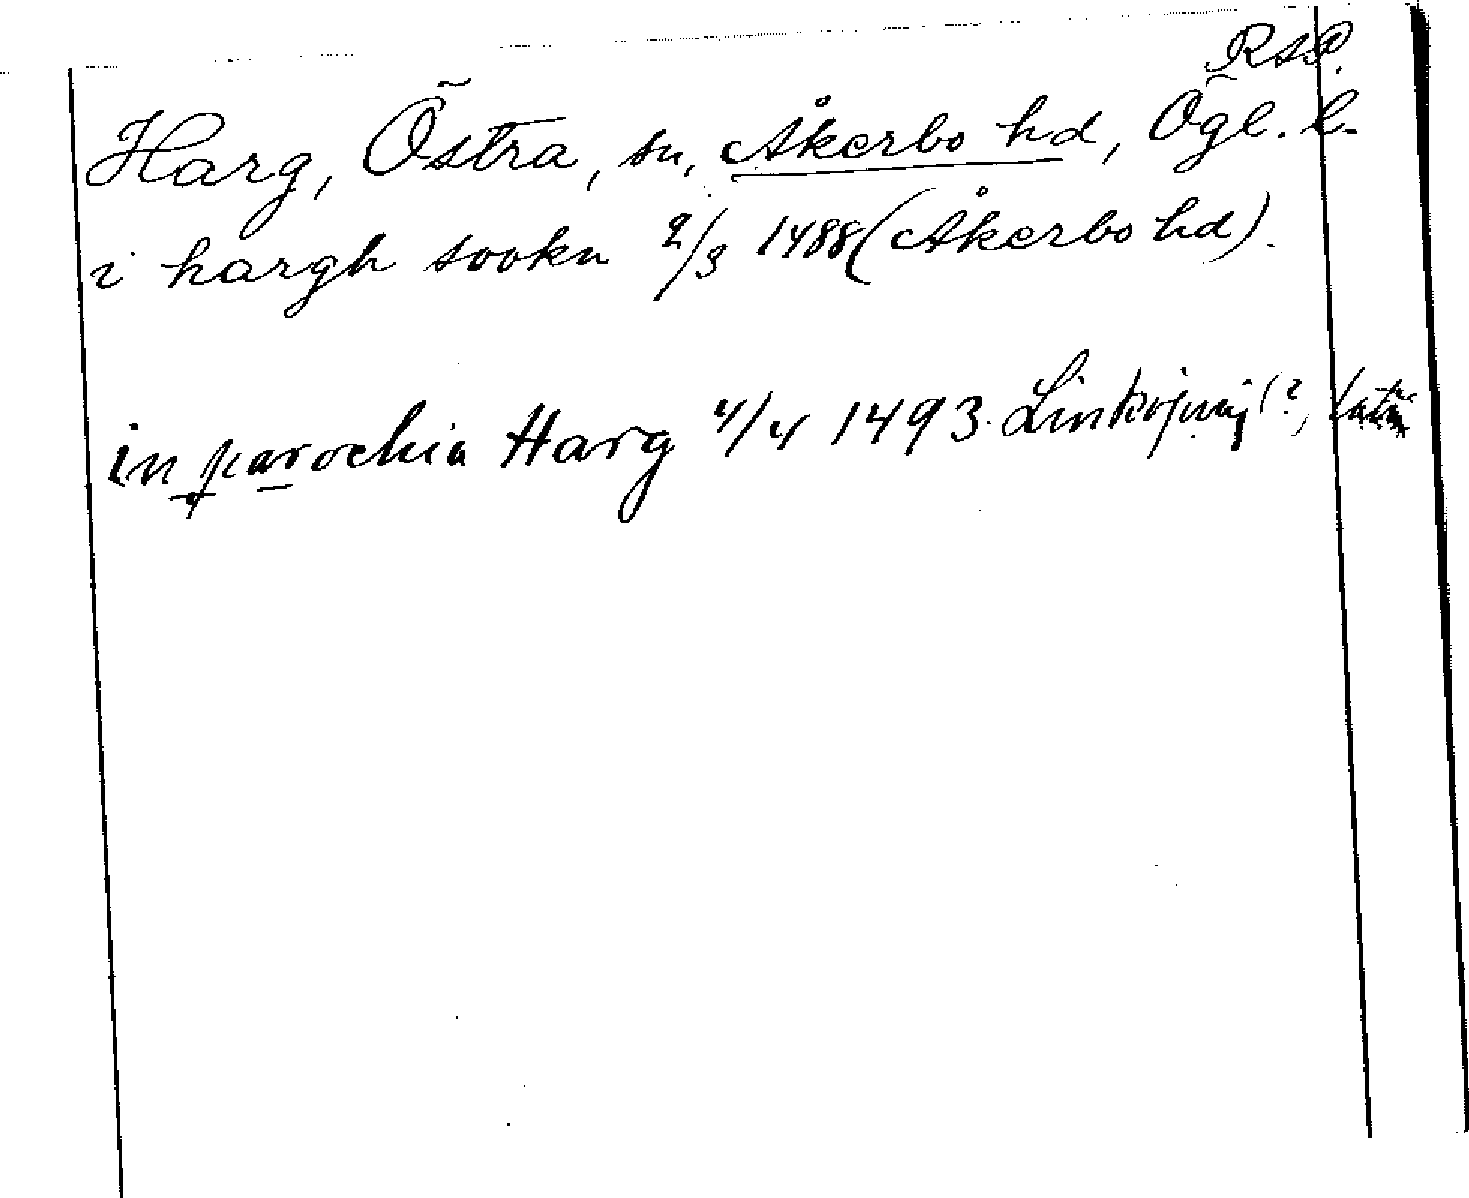 RAP.
Harg, Östra, sn, Åkerbo hd, Ögl. l.
i hargh sookn 2/3 1488 (Åkerbo hd).
in parochia Harg 4/4 1493. Linköping (?, latin